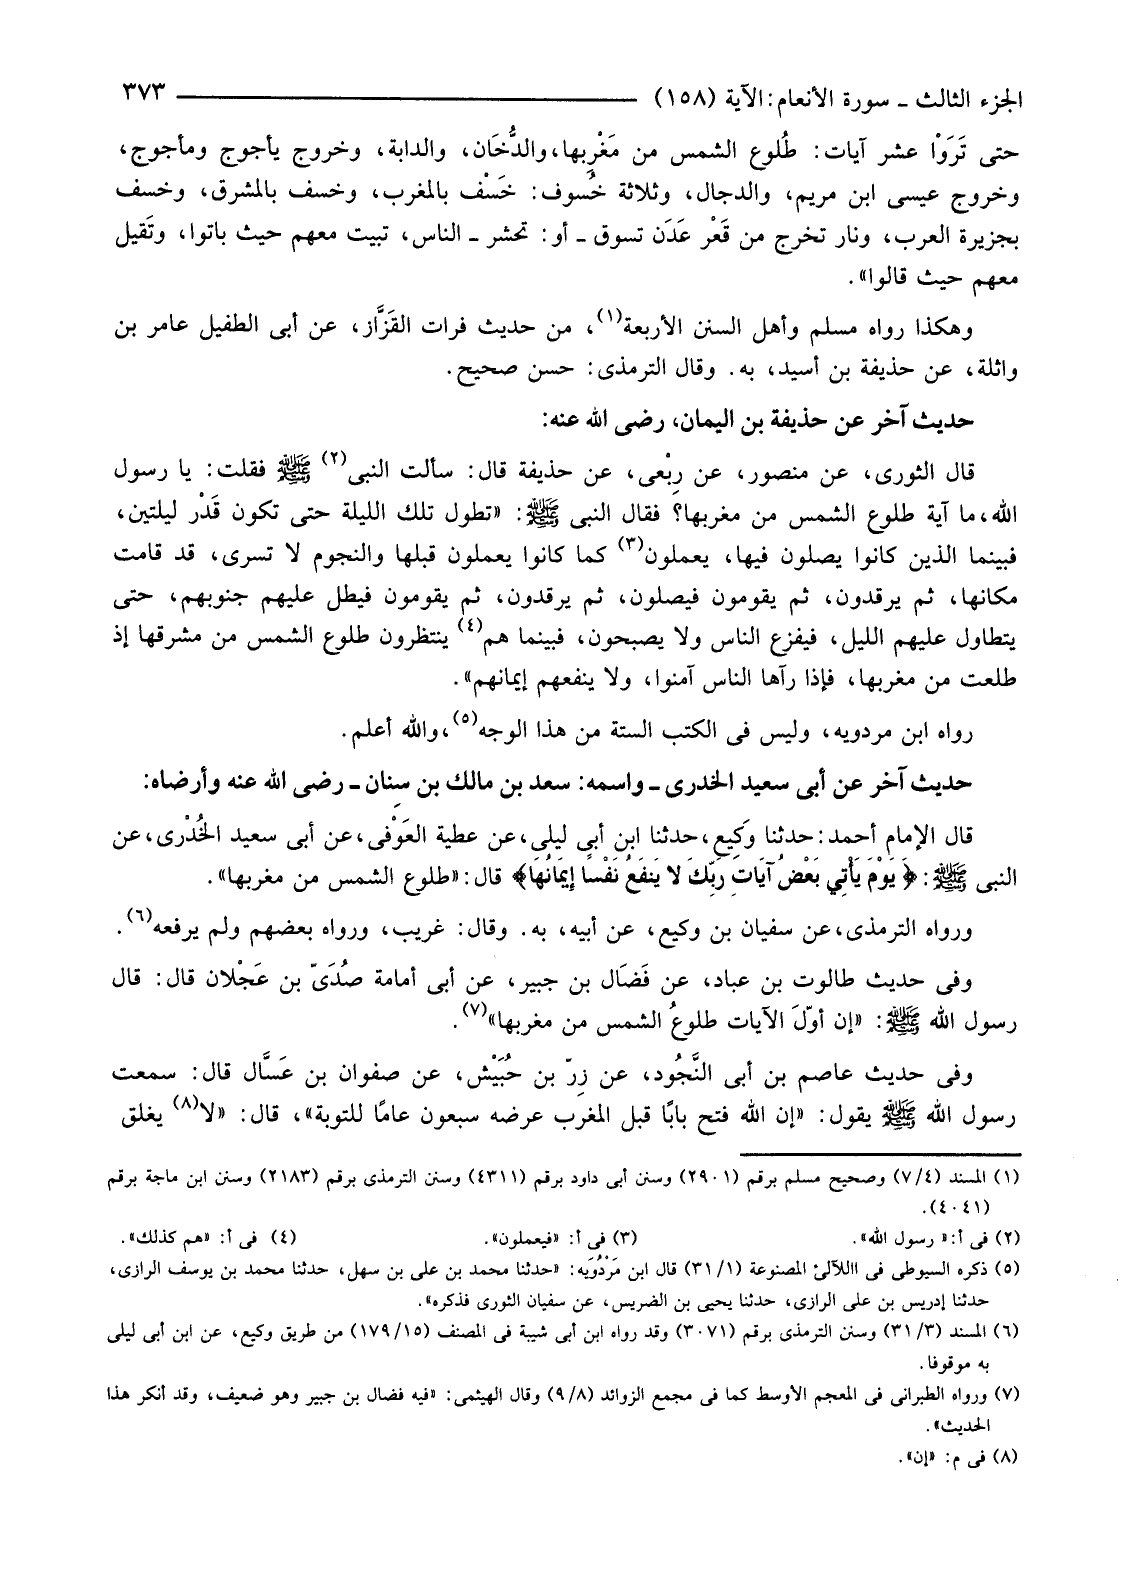 الجزء الثالث ـ سورة الأنعام: الآية (١٥٨) ٣٧٣
حتى تَرَوْا عشر آيات: طُلوع الشمس من مَغْرِبها، والدُّخَان، والدابة، وخروج يأجوج ومأجوج،
وخروج عيسى ابن مريم، والدجال، وثلاثة خُسوف: خَسْف بالمغرب، وخسف بالمشرق، وخسف
بجزيرة العرب، ونار تخرج من قَعْر عَدَن تسوق ـ أو: تحشر ـ الناس، تبيت معهم حيث باتوا، وتَقيل
معهم حيث قالوا».
وهكذا رواه مسلم وأهل السنن الأربعة(١)، من حديث فرات القَزَّاز، عن أبى الطفيل عامر بن
واثلة، عن حذيفة بن أسيد، به. وقال الترمذى: حسن صحيح.
حديث آخر عن حذيفة بن اليمان، رضى الله عنه:
قال الثورى، عن منصور، عن رِبْعى، عن حذيفة قال: سألت النبى(٢) ﷺ فقلت: يا رسول
الله، ما آية طلوع الشمس من مغربها؟ فقال النبى ﷺ: «تطول تلك الليلة حتى تكون قَدْر ليلتين،
فبينما الذين كانوا يصلون فيها، يعملون(٣) كما كانوا يعملون قبلها والنجوم لا تسرى، قد قامت
مكانها، ثم يرقدون، ثم يقومون فيصلون، ثم يرقدون، ثم يقومون فيطل عليهم جنوبهم، حتى
يتطاول عليهم الليل، فيفزع الناس ولا يصبحون، فبينما هم(٤) ينتظرون طلوع الشمس من مشرقها إذ
طلعت من مغربها، فإذا رآها الناس آمنوا، ولا ينفعهم إيمانهم».
رواه ابن مردويه، وليس فى الكتب الستة من هذا الوجه(٥)، والله أعلم.
حديث آخر عن أبى سعيد الخدرى ـ واسمه: سعد بن مالك بن سِنان ـ رضى الله عنه وأرضاه:
قال الإمام أحمد: حدثنا وَكِيع، حدثنا ابن أبى ليلى، عن عطية العَوْفى، عن أبى سعيد الخُدْرى، عن
النبى ﷺ: ﴿يَوْمَ يَأْتِي بَعْضُ آيَاتِ رَبِّكَ لا يَنفَعُ نَفْسًا إِيمَانُهَا﴾ قال: «طلوع الشمس من مغربها».
ورواه الترمذى، عن سفيان بن وكيع، عن أبيه، به. وقال: غريب، ورواه بعضهم ولم يرفعه(٦).
وفى حديث طالوت بن عباد، عن فَضَال بن جبير، عن أبى أمامة صُدَىّ بن عَجْلان قال: قال
رسول الله ﷺ: «إن أوّلَ الآيات طلوعُ الشمس من مغربها»(٧).
وفى حديث عاصم بن أبى النَّجُود، عن زِرّ بن حُبَيْش، عن صفوان بن عَسَّال قال: سمعت
رسول الله ﷺ يقول: «إن الله فتح بابًا قبل المغرب عرضه سبعون عامًا للتوبة»، قال: «لا(٨) يغلق
(١) المسند (٧/٤) وصحيح مسلم برقم (٢٩٠١) وسنن أبى داود برقم (٤٣١١) وسنن الترمذى برقم (٢١٨٣) وسنن ابن ماجة برقم
(٤٠٤١).
(٢) فى أ: « رسول الله». (٣) فى أ: «فيعملون». (٤) فى أ: «هم كذلك».
(٥) ذكره السيوطى فى االلآلئ المصنوعة (٣١/١) قال ابن مَرْدُوَيه: «حدثنا محمد بن على بن سهل، حدثنا محمد بن يوسف الرازى،
حدثنا إدريس بن على الرازى، حدثنا يحيى بن الضريس، عن سفيان الثورى فذكره».
(٦) المسند (٣١/٣) وسنن الترمذى برقم (٣٠٧١) وقد رواه ابن أبى شيبة فى المصنف (١٧٩/١٥) من طريق وكيع، عن ابن أبى ليلى
به موقوفا.
(٧) ورواه الطبرانى فى المعجم الأوسط كما فى مجمع الزوائد (٩/٨) وقال الهيثمى: «فيه فضال بن جبير وهو ضعيف، وقد أنكر هذا
الحديث».
(٨) فى م: «إن».